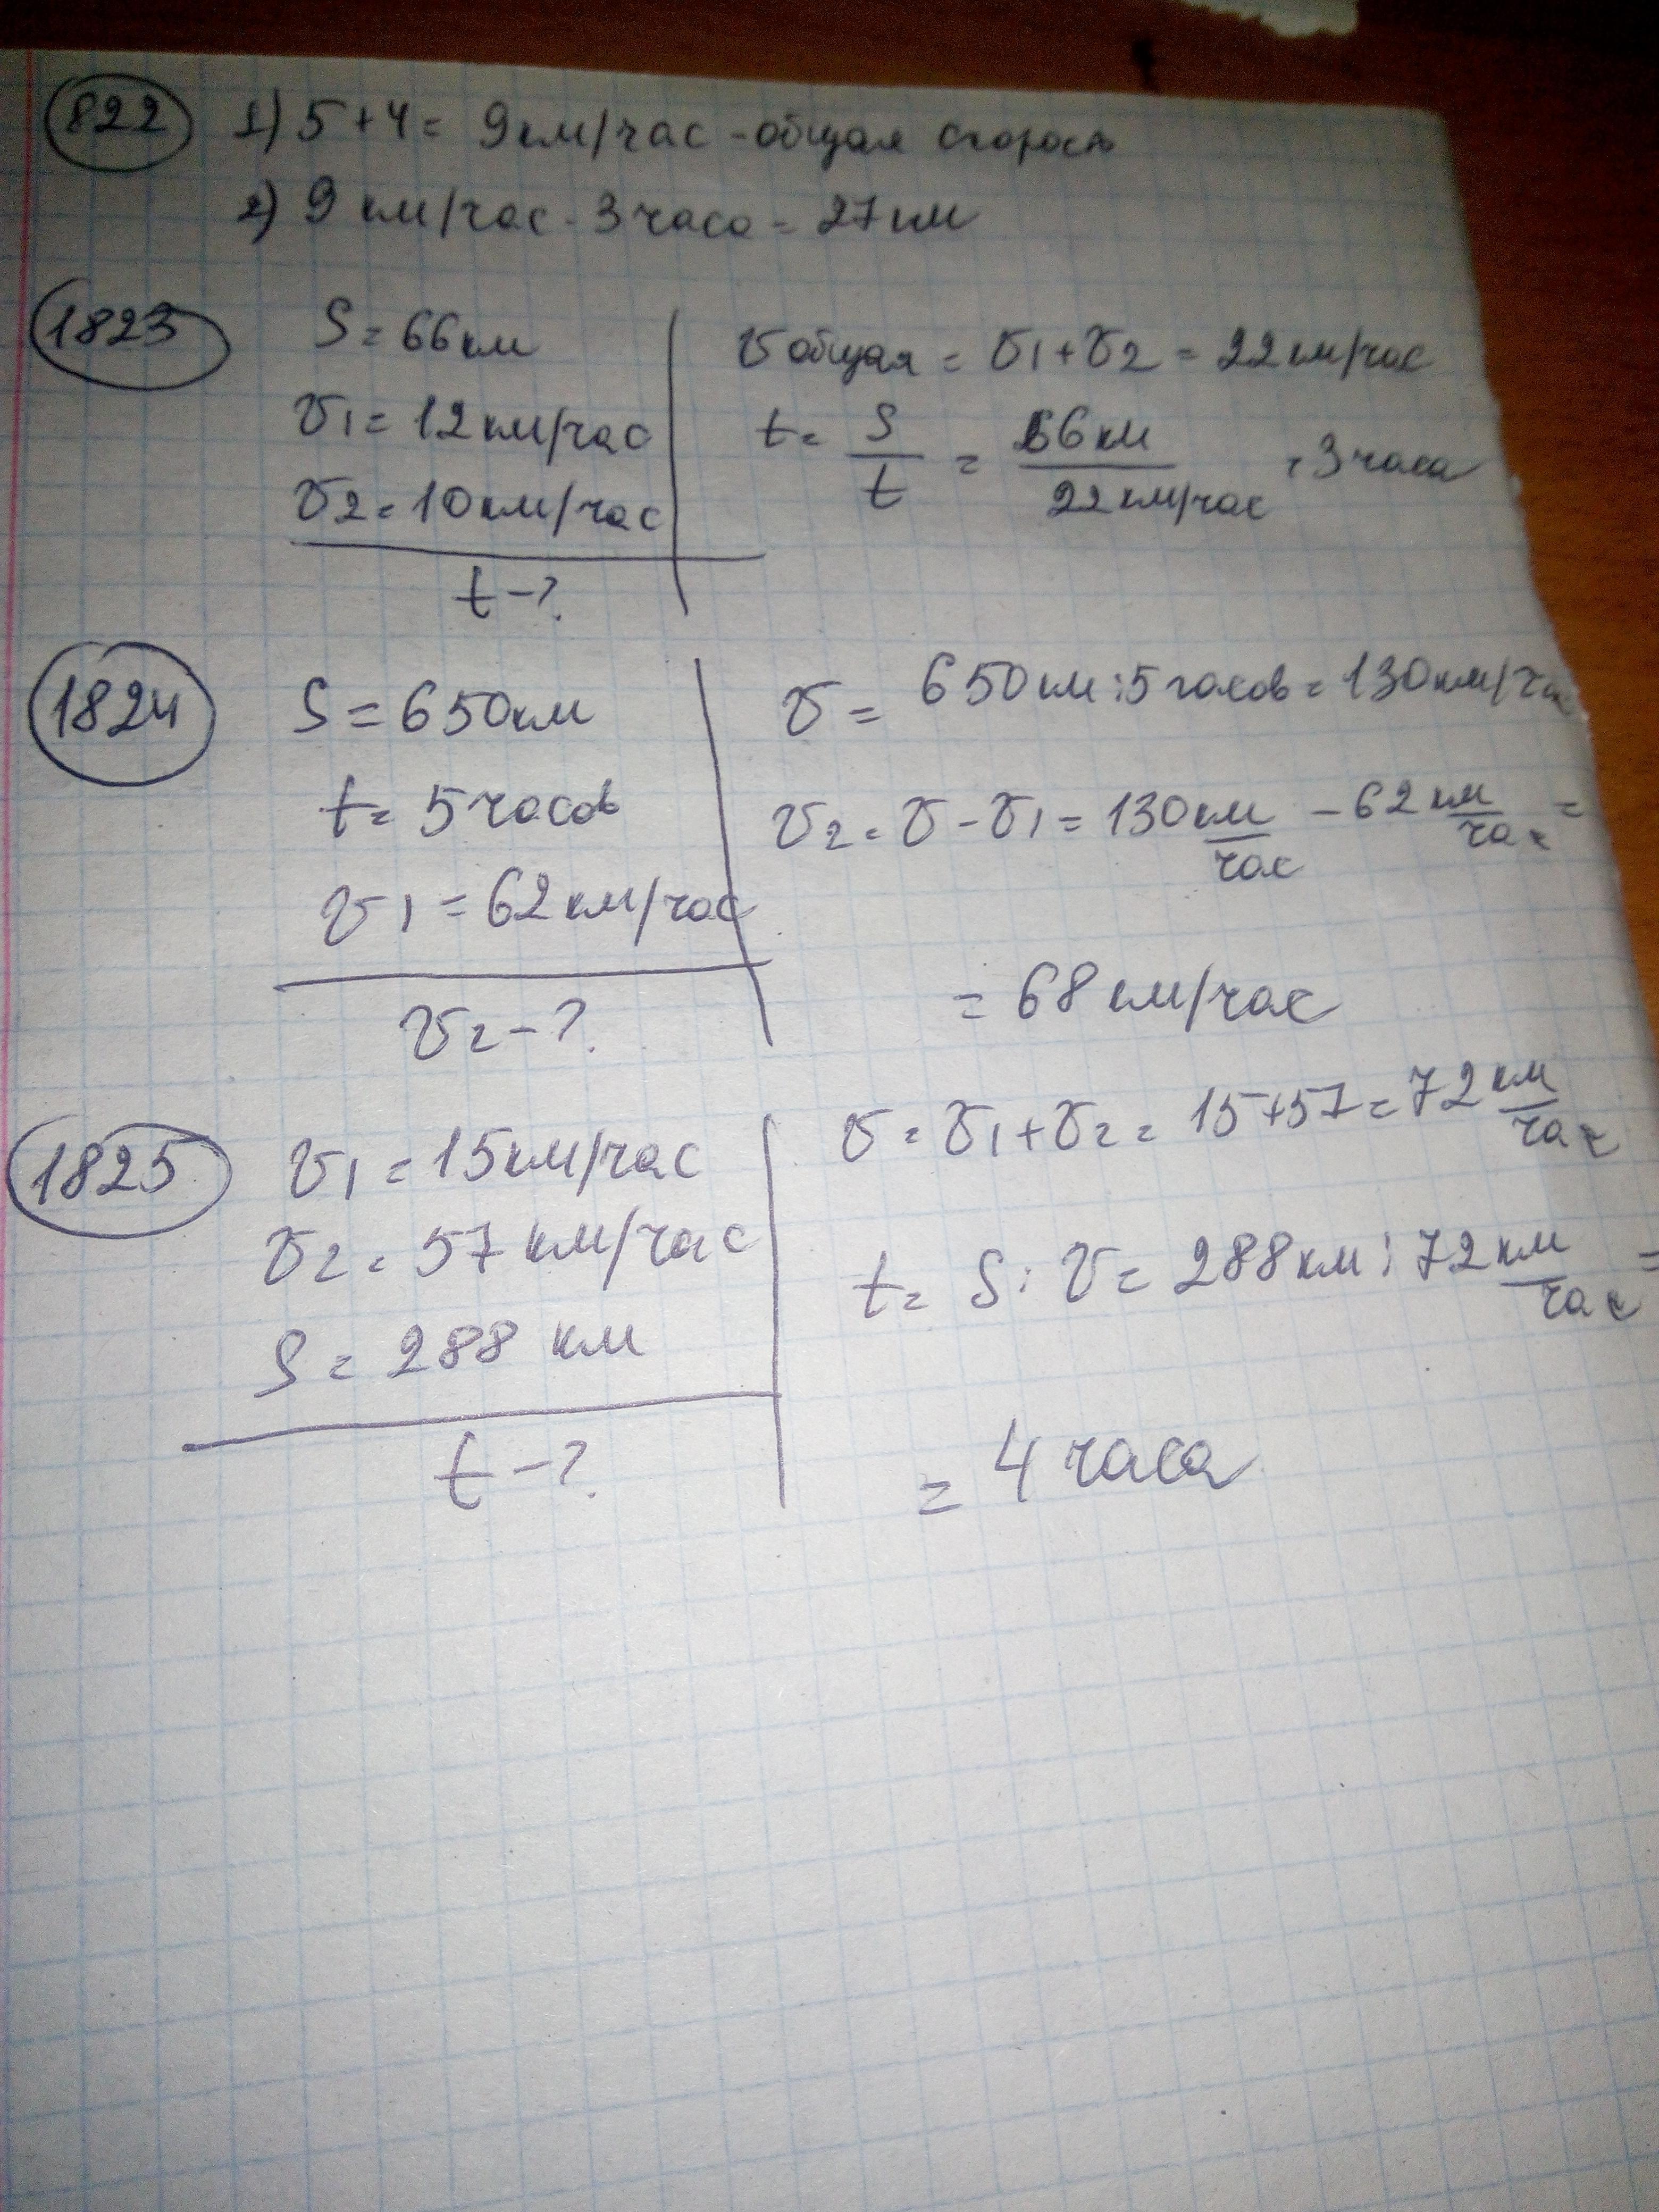 822 1) 5+4= 9км/час - общая скорость
2) 9 км/час · 3 часа = 27 км
1823
S = 66км
υ1 = 12 км/час
υ2 = 10 км/час
t - ?
υ общая = υ1 + υ2 = 22 км/час
t = S/t = 66 км/22 км/час = 3 часа
1824
S = 650км
t = 5 часов
υ1 = 62 км/час
υ2 - ?
υ = 650 км : 5 часов = 130 км/час
υ2 = υ - υ1 = 130 км/час - 62 км/час =
= 68 км/час
1825
υ1 = 15км/час
υ2 = 57 км/час
S = 288 км
t - ?
υ = υ1 + υ2 = 15+57 = 72 км/час
t = S : υ = 288 км : 72 км/час =
= 4 часа